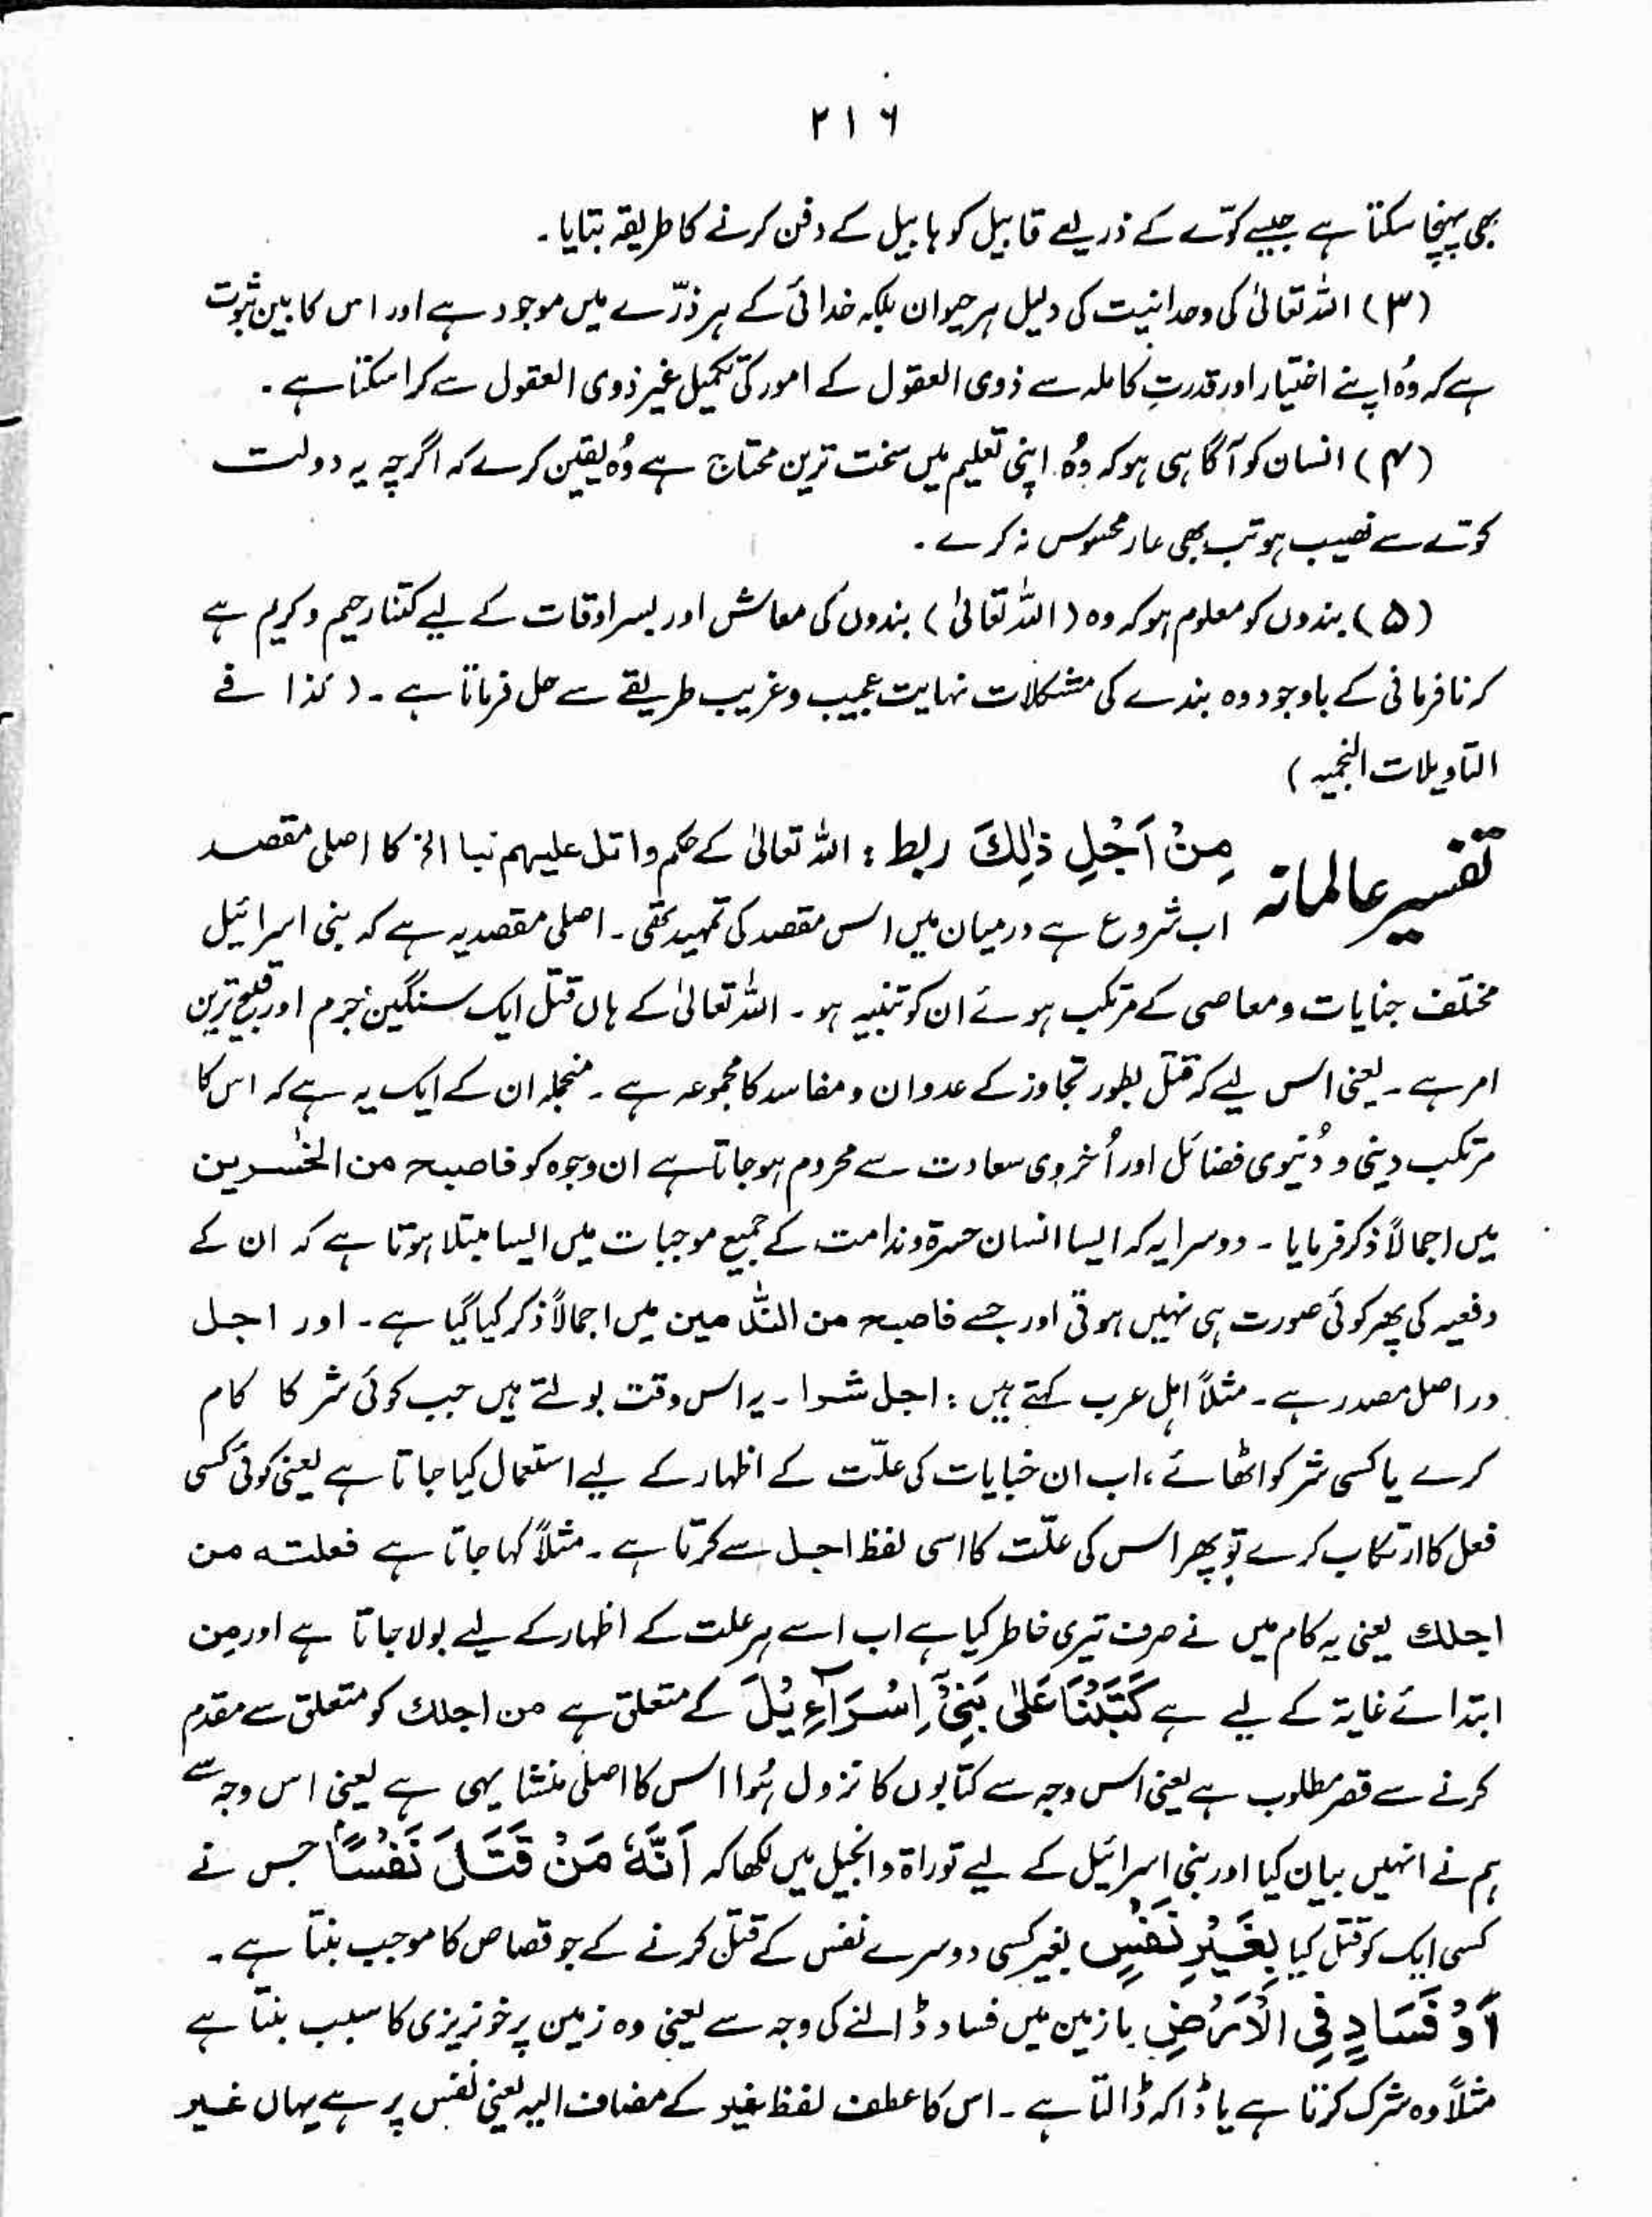 ۲۱۶
بھی پہنچا سکتا ہے جیسے کوّے کے ذریعے قابیل کو ہابیل کے دفن کرنے کا طریقہ بتایا۔
(۳) اللہ تعالیٰ کی وحدانیت کی دلیل ہر حیوان بلکہ خدائی کے ہر ذرّے میں موجود ہے اور اس کا بین ثبوت
ہے کہ وُہ اپنے اختیار اور قدرتِ کاملہ سے ذوی العقول کے امور کی تکمیل غیر ذوی العقول سے کرا سکتا ہے۔
(۴) انسان کو آگاہی ہو کہ وُہ اپنی تعلیم میں سخت ترین محتاج ہے وُہ یقین کرے کہ اگرچہ یہ دولت
کوّے سے نصیب ہو تب بھی عار محسوس نہ کرے۔
(۵) بندوں کو معلوم ہو کہ وہ (اللہ تعالیٰ) بندوں کی معاش اور بسر اوقات کے لیے کتنا رحیم و کریم ہے
کہ نافرمانی کے باوجود وہ بندے کی مشکلات نہایت عجیب و غریب طریقے سے حل فرماتا ہے۔ (کذا فے
التاویلات النجمیہ)
تفسیر عالمانہ مِنْ اَجْلِ ذٰلِکَ ربط : اللہ تعالیٰ کے حکم واتل علیہم نبا الخ کا اصلی مقصد
اب شروع ہے درمیان میں اس مقصد کی تمہید تھی۔ اصلی مقصد یہ ہے کہ بنی اسرائیل
مختلف جنایات و معاصی کے مرتکب ہوئے ان کو تنبیہ ہو۔ اللہ تعالیٰ کے ہاں قتل ایک سنگین جُرم اور قبیح ترین
امر ہے۔ یعنی اس لیے کہ قتل بطور تجاوز کے عدوان و مفاسد کا مجموعہ ہے۔ منجملہ ان کے ایک یہ ہے کہ اس کا
مرتکب دینی و دُنیوی فضائل اور اُخروی سعادت سے محروم ہو جاتا ہے ان وجوہ کو فاصبح من الخٰسرین
میں اجمالاً ذکر فرمایا۔ دوسرا یہ کہ ایسا انسان حسرۃ و ندامت کے جمیع موجبات میں ایسا مبتلا ہوتا ہے کہ ان کے
دفعیہ کی پھر کوئی صورت ہی نہیں ہوتی اور جسے فاصبح من النّٰدمین میں اجمالاً ذکر کیا گیا ہے۔ اور اجل
دراصل مصدر ہے۔ مثلاً اہل عرب کہتے ہیں : اجل شرا۔ یہ اس وقت بولتے ہیں جب کوئی شر کا کام
کرے یا کسی شر کو اٹھائے ، اب ان خبایات کی علّت کے اظہار کے لیے استعمال کیا جاتا ہے یعنی کوئی کسی
فعل کا ارتکاب کرے تو پھر اس کی علّت کا اسی لفظ اجل سے کرتا ہے۔ مثلاً کہا جاتا ہے فعلته من
اجلك یعنی یہ کام میں نے صرف تیری خاطر کیا ہے اب اسے ہر علت کے اظہار کے لیے بولا جاتا ہے اور مِن
ابتدائے غایۃ کے لیے ہے کَتَبْنَا عَلٰی بَنِیْٓ اِسْرَآءِیْلَ کے متعلق ہے من اجلك کو متعلق سے مقدم
کرنے سے قصر مطلوب ہے یعنی اس وجہ سے کتابوں کا نزول ہُوا اس کا اصلی منشا یہی ہے یعنی اس وجہ سے
ہم نے انہیں بیان کیا اور بنی اسرائیل کے لیے توراۃ و انجیل میں لکھا کہ اَنَّهٗ مَنْ قَتَلَ نَفْسًا جس نے
کسی ایک کو قتل کیا بِغَیْرِ نَفْسٍ بغیر کسی دوسرے نفس کے قتل کرنے کے جو قصاص کا موجب بنتا ہے۔
اَوْ فَسَادٍ فِی الْاَرْضِ یا زمین میں فساد ڈالنے کی وجہ سے یعنی وہ زمین پر خونریزی کا سبب بنتا ہے
مثلاً وہ شرک کرتا ہے یا ڈاکہ ڈالتا ہے۔ اس کا عطف لفظ بغیر کے مضاف الیہ یعنی نفس پر ہے یہاں غیر